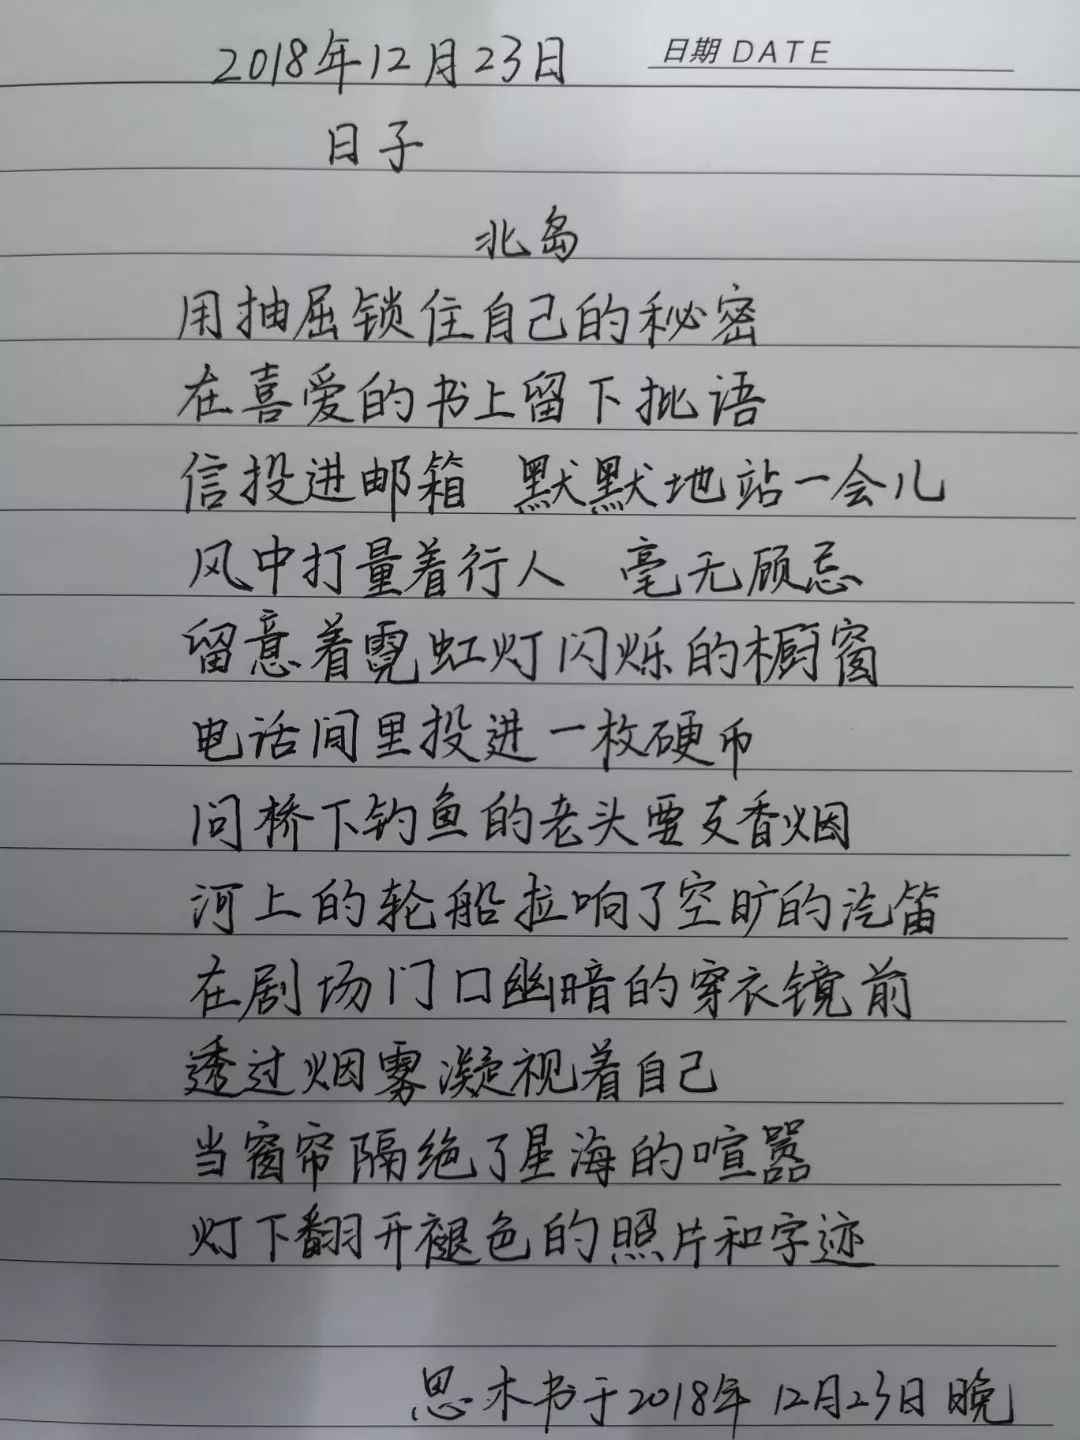 2018年12月23日 日期 DATE
日子
北岛
用抽屉锁住自己的秘密
在喜爱的书上留下批语
信投进邮箱 默默地站一会儿
风中打量着行人 毫无顾忌
留意着霓虹灯闪烁的橱窗
电话间里投进一枚硬币
问桥下钓鱼的老头要支香烟
河上的轮船拉响了空旷的汽笛
在剧场门口幽暗的穿衣镜前
透过烟雾凝视着自己
当窗帘隔绝了星海的喧嚣
灯下翻开褪色的照片和字迹
思木书于2018年12月23日晚